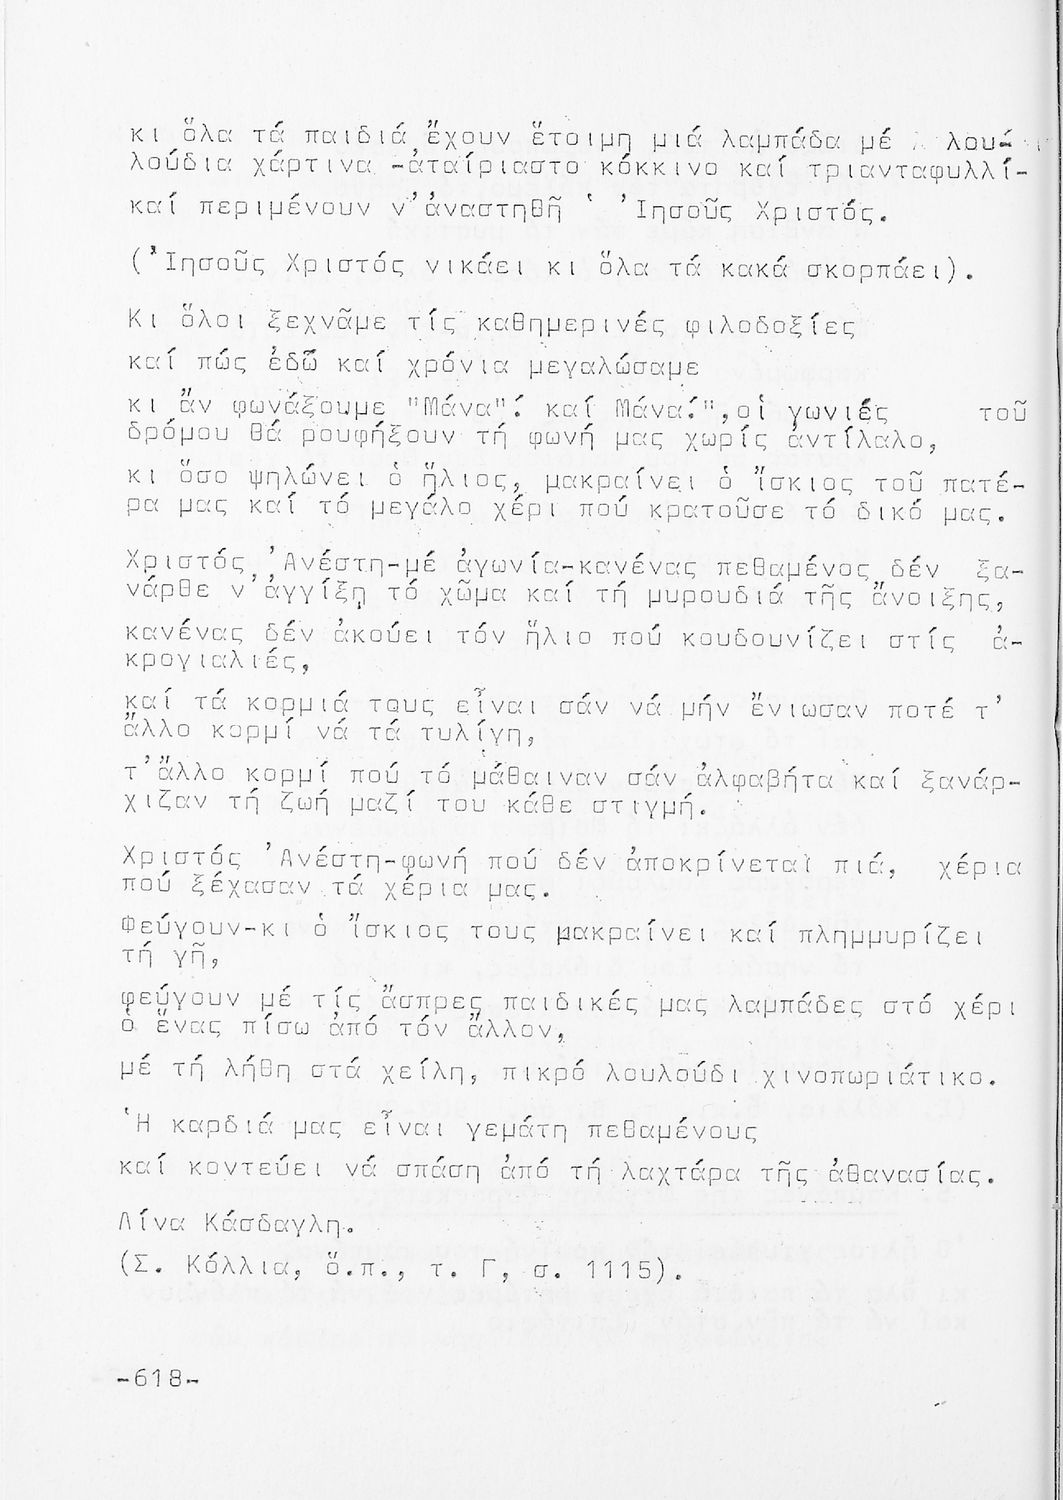 κι ὅλα τά παιδιά ἔχουν ἕτοιμη μιά λαμπάδα μέ λου-
λούδια χάρτινα -ἀταίριαστο κόκκινο καί τριανταφυλλί-
καί περιμένουν ν'ἀναστηθῆ ὁ 'Ιησοῦς Χριστός.
('Ιησοῦς Χριστός νικάει κι ὅλα τά κακά σκορπάει).
Κι ὅλοι ξεχνᾶμε τίς καθημερινές φιλοδοξίες
καί πώς ἐδῶ καί χρόνια μεγαλώσαμε
κι ἄν φωνάξουμε "Μάνα"! καί Μάνα!",οἱ γωνιές τοῦ
δρόμου θά ρουφήξουν τή φωνή μας χωρίς ἀντίλαλο,
κι ὅσο ψηλώνει ὁ ἥλιος, μακραίνει ὁ ἴσκιος τοῦ πατέ-
ρα μας καί τό μεγάλο χέρι πού κρατοῦσε τό δικό μας.
Χριστός 'Ανέστη-μέ ἀγωνία-κανένας πεθαμένος δέν ξα-
νάρθε ν'ἀγγίξη τό χῶμα καί τή μυρουδιά τῆς ἄνοιξης,
κανένας δέν ἀκούει τόν ἥλιο πού κουδουνίζει στίς ἀ-
κρογιαλιές,
καί τά κορμιά τους εἶναι σάν νά μήν ἔνιωσαν ποτέ τ'
ἄλλο κορμί νά τά τυλίγη,
τ'ἄλλο κορμί πού τό μάθαιναν σάν ἀλφαβήτα καί ξανάρ-
χιζαν τή ζωή μαζί του κάθε στιγμή.
Χριστός 'Ανέστη-φωνή πού δέν ἀποκρίνεται πιά, χέρια
πού ξέχασαν τά χέρια μας.
Φεύγουν-κι ὁ ἴσκιος τους μακραίνει καί πλημμυρίζει
τή γῆ,
φεύγουν μέ τίς ἄσπρες παιδικές μας λαμπάδες στό χέρι
ὁ ἕνας πίσω ἀπό τόν ἄλλον,
μέ τή λήθη στά χείλη, πικρό λουλούδι χινοπωριάτικο.
'Η καρδιά μας εἶναι γεμάτη πεθαμένους
καί κοντεύει νά σπάση ἀπό τή λαχτάρα τῆς ἀθανασίας.
Λίνα Κάσδαγλη.
(Σ. Κόλλια, ὅ.π., τ. Γ, σ. 1115).
-618-